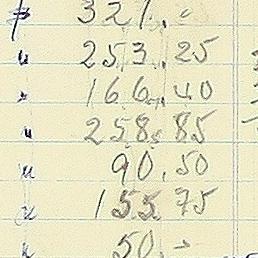 321.-
" 253.25
" 166.40
" 258.85
" 90.50
" 155.75
" 50.-